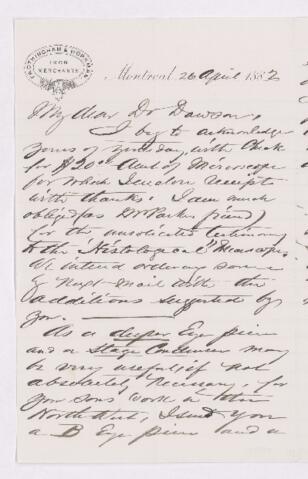 FROTHINGHAM & WORKMAN
IRON
MERCHANTS
Montreal, 26 April 1882
My dear Dr Dawson,
I beg to acknowledge
yours of yesterday, with Check
for $20 on a/c of Microscope
for which I enclose receipts
with thanks. I am much
obliged (as Dr Parkes friend)
for the unsolicited testimony
to the "Histological" Microscope.
We intend ordering some
by next mail with the
additions suggested by
you.
As a deeper Eye piece
and a Stage Condenser may
be very useful if not
absolutely necessary, for
your sons work in the
North West, I send you
a B Eye piece and a